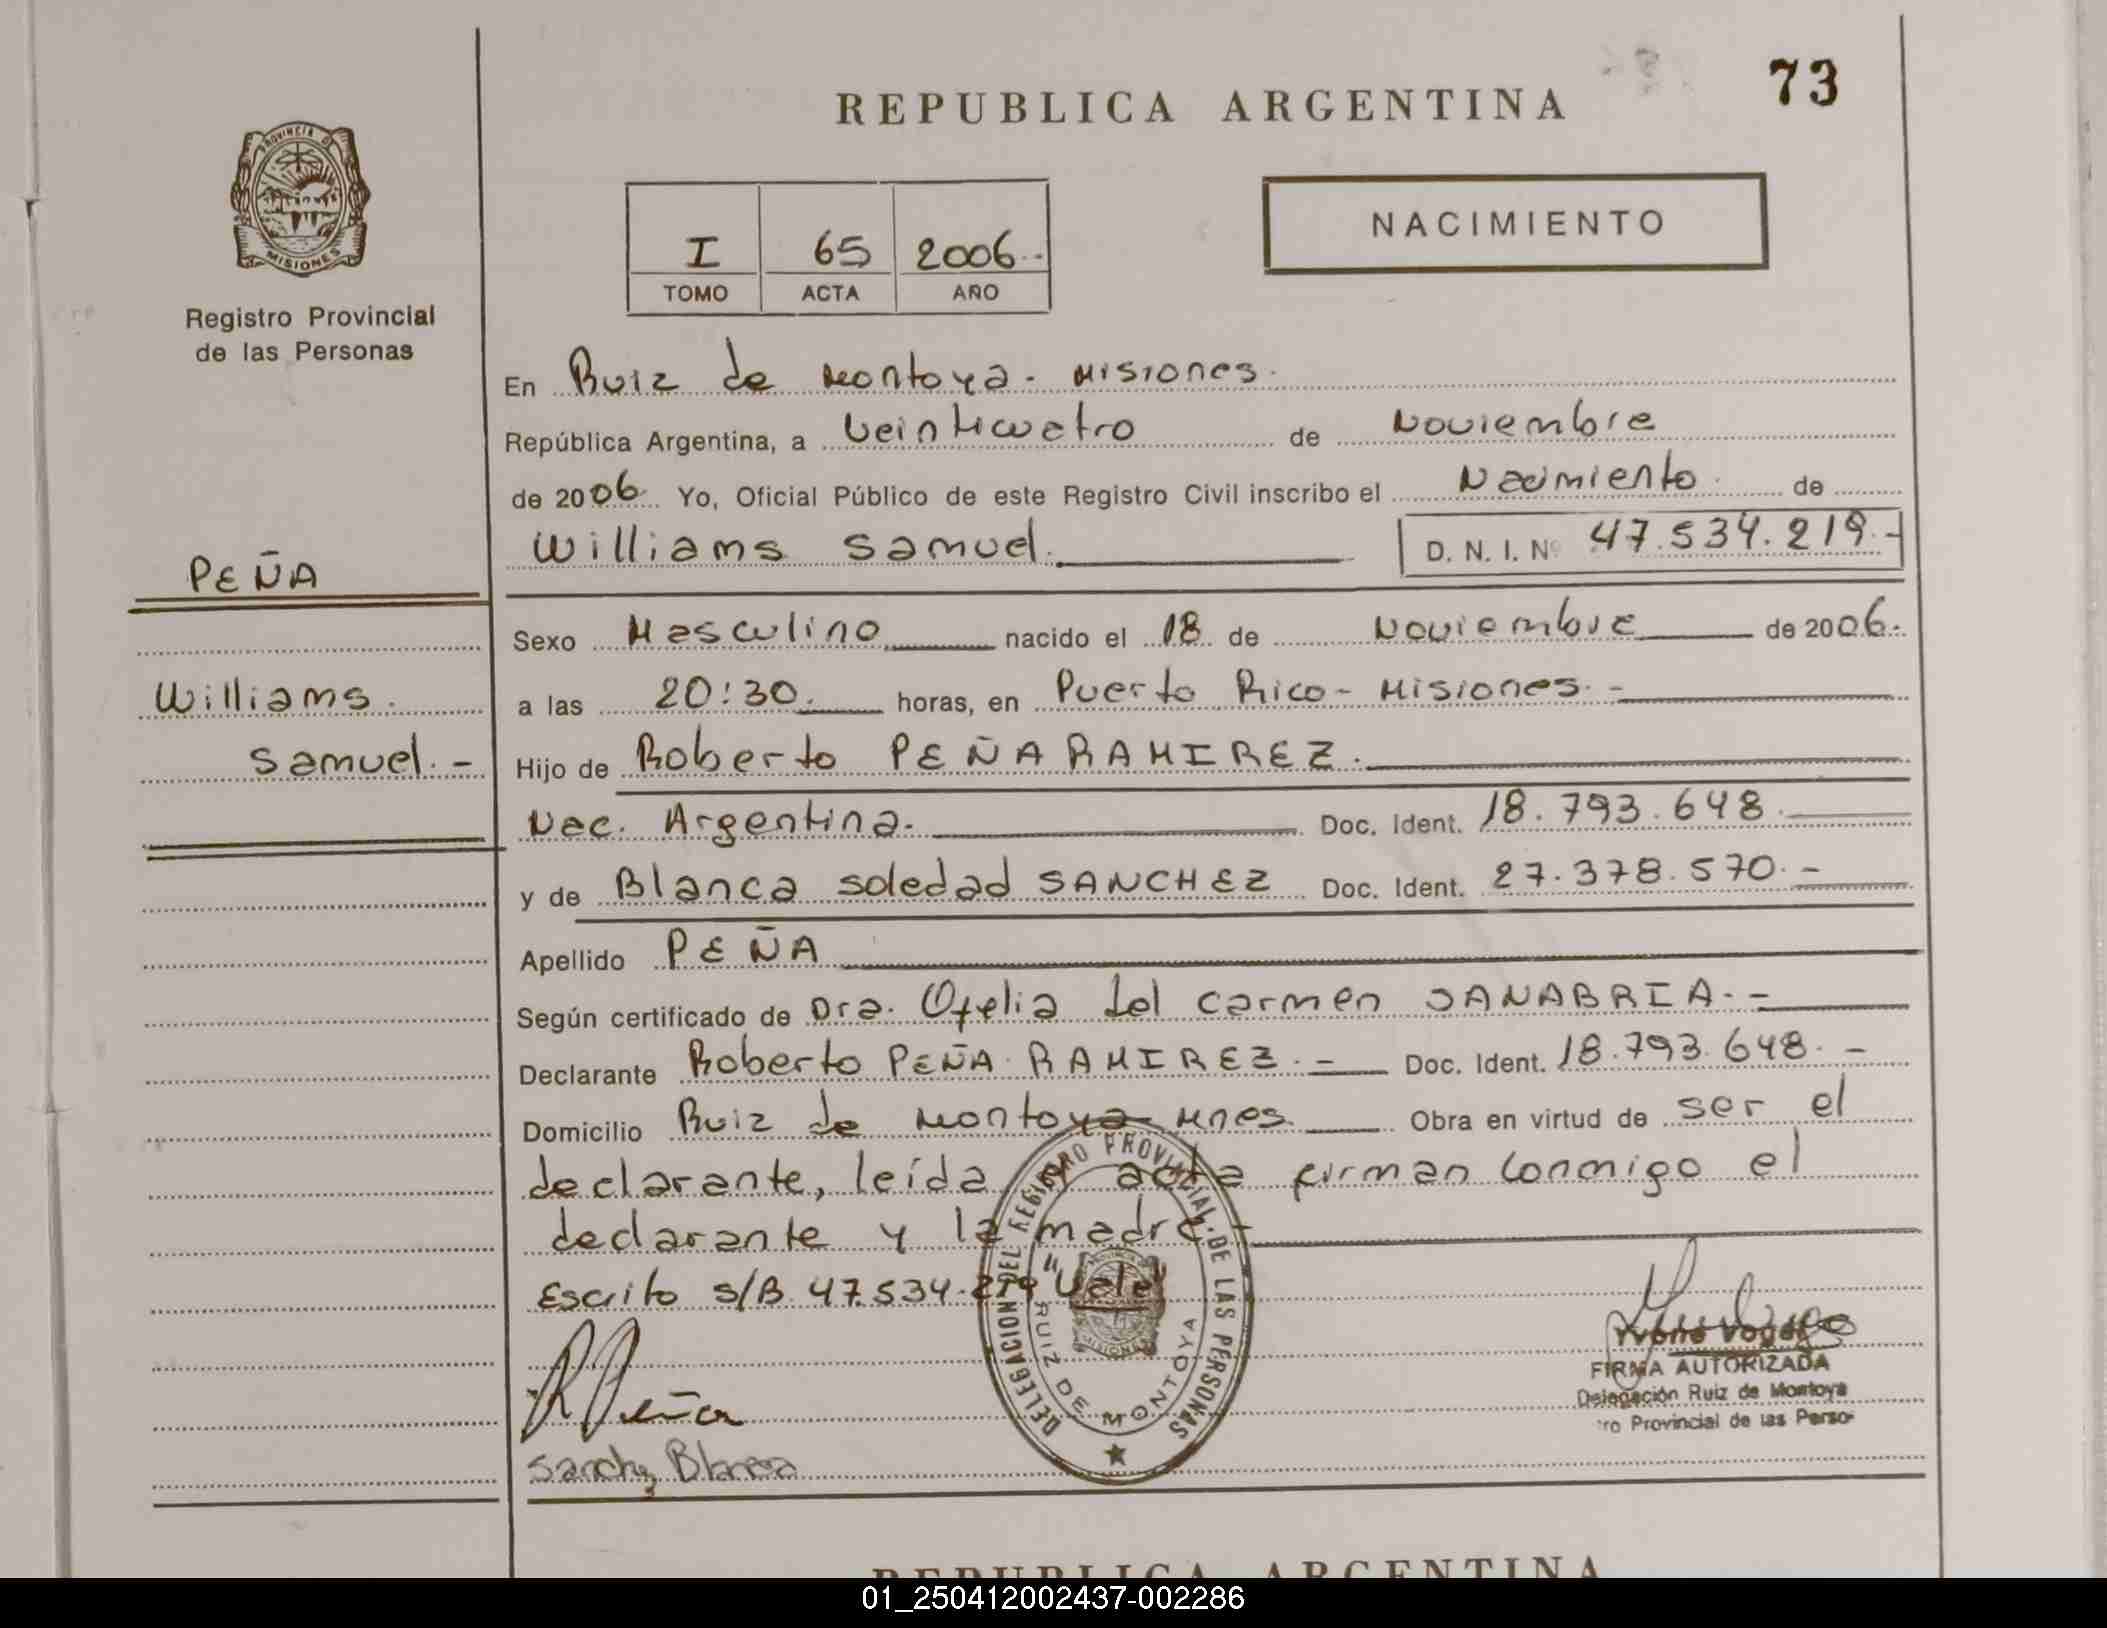 73
REPUBLICA ARGENTINA
PROVINCIA DE
MISIONES
Registro Provincial
de las Personas
NACIMIENTO
I 65 2006.-
TOMO ACTA AÑO
En Ruiz de Montoya. Misiones.
República Argentina, a Veinticuatro de Noviembre
de 2006. Yo, Oficial Público de este Registro Civil inscribo el Nacimiento de
Williams Samuel. D. N. I. Nº 47.534.219.-
PEÑA
Williams
Samuel.-
Sexo Masculino nacido el 18 de Noviembre de 2006.
a las 20:30. horas, en Puerto Rico - Misiones.-
Hijo de Roberto PEÑA RAMIREZ.
Nac. Argentina. Doc. Ident. 18.793.648.
y de Blanca Soledad SANCHEZ Doc. Ident. 27.378.570.-
Apellido PEÑA
Según certificado de Dra. Ofelia del Carmen SANABRIA.-
Declarante Roberto PEÑA RAMIREZ.- Doc. Ident. 18.793.648.-
Domicilio Ruiz de Montoya Mnes. Obra en virtud de ser el
declarante, leída el acta firman conmigo el
declarante y la madre.-
Escrito s/B 47.534.219 "Vale"
DELEGACION DEL REGISTRO PROVINCIAL DE LAS PERSONAS
RUIZ DE MONTOYA
MISIONES
R Peña
Sanchez Blanca
Yvone Vogel
FIRMA AUTORIZADA
Delegación Ruiz de Montoya
ro Provincial de las Perso
REPUBLICA ARGENTINA
01_250412002437-002286